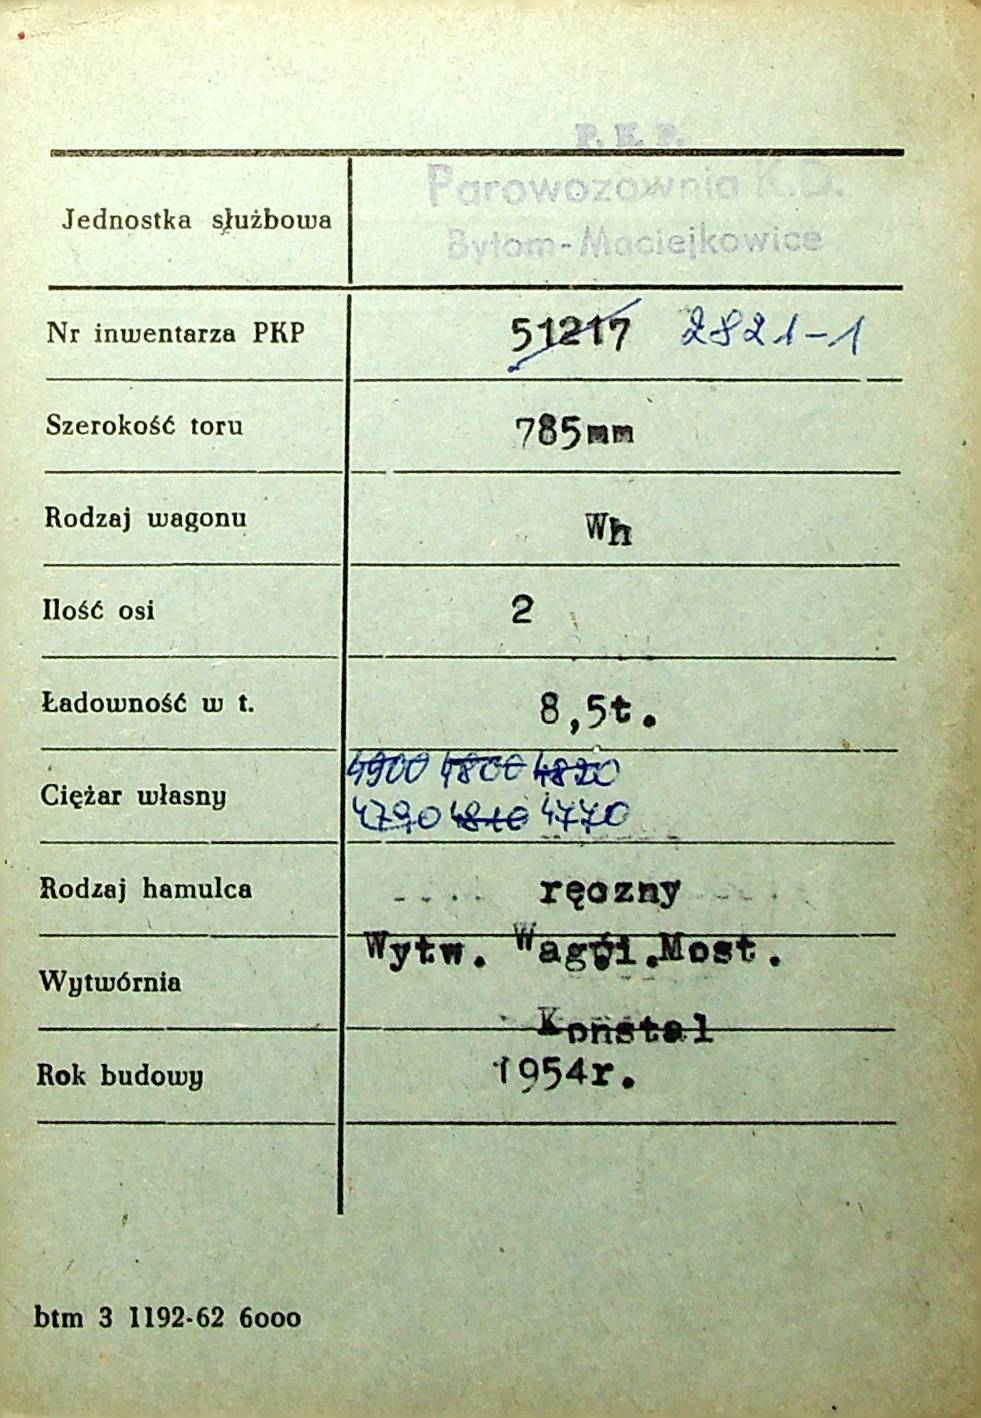 P. K. P.
Jednostka służbowa Parowozownia K.D.
Bytom-Maciejkowice
Nr inwentarza PKP 51217 2821-1
Szerokość toru 785mm
Rodzaj wagonu Wh
Ilość osi 2
Ładowność w t. 8,5t.
4900 4800 4820
Ciężar własny
4790 4810 4770
Rodzaj hamulca ręczny
Wytw. Wag.i.Most.
Wytwórnia
Konstal
Rok budowy 1954r.
btm 3 1192-62 6ooo